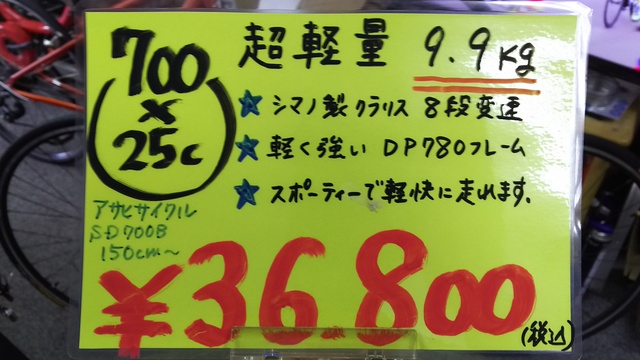 700
×
25c
超軽量 9.9kg
★シマノ製クラリス 8段変速
★軽く強い DP780フレーム
★スポーティーで軽快に走れます。
アサヒサイクル
SD700B
150cm〜
¥36.800
(税込)